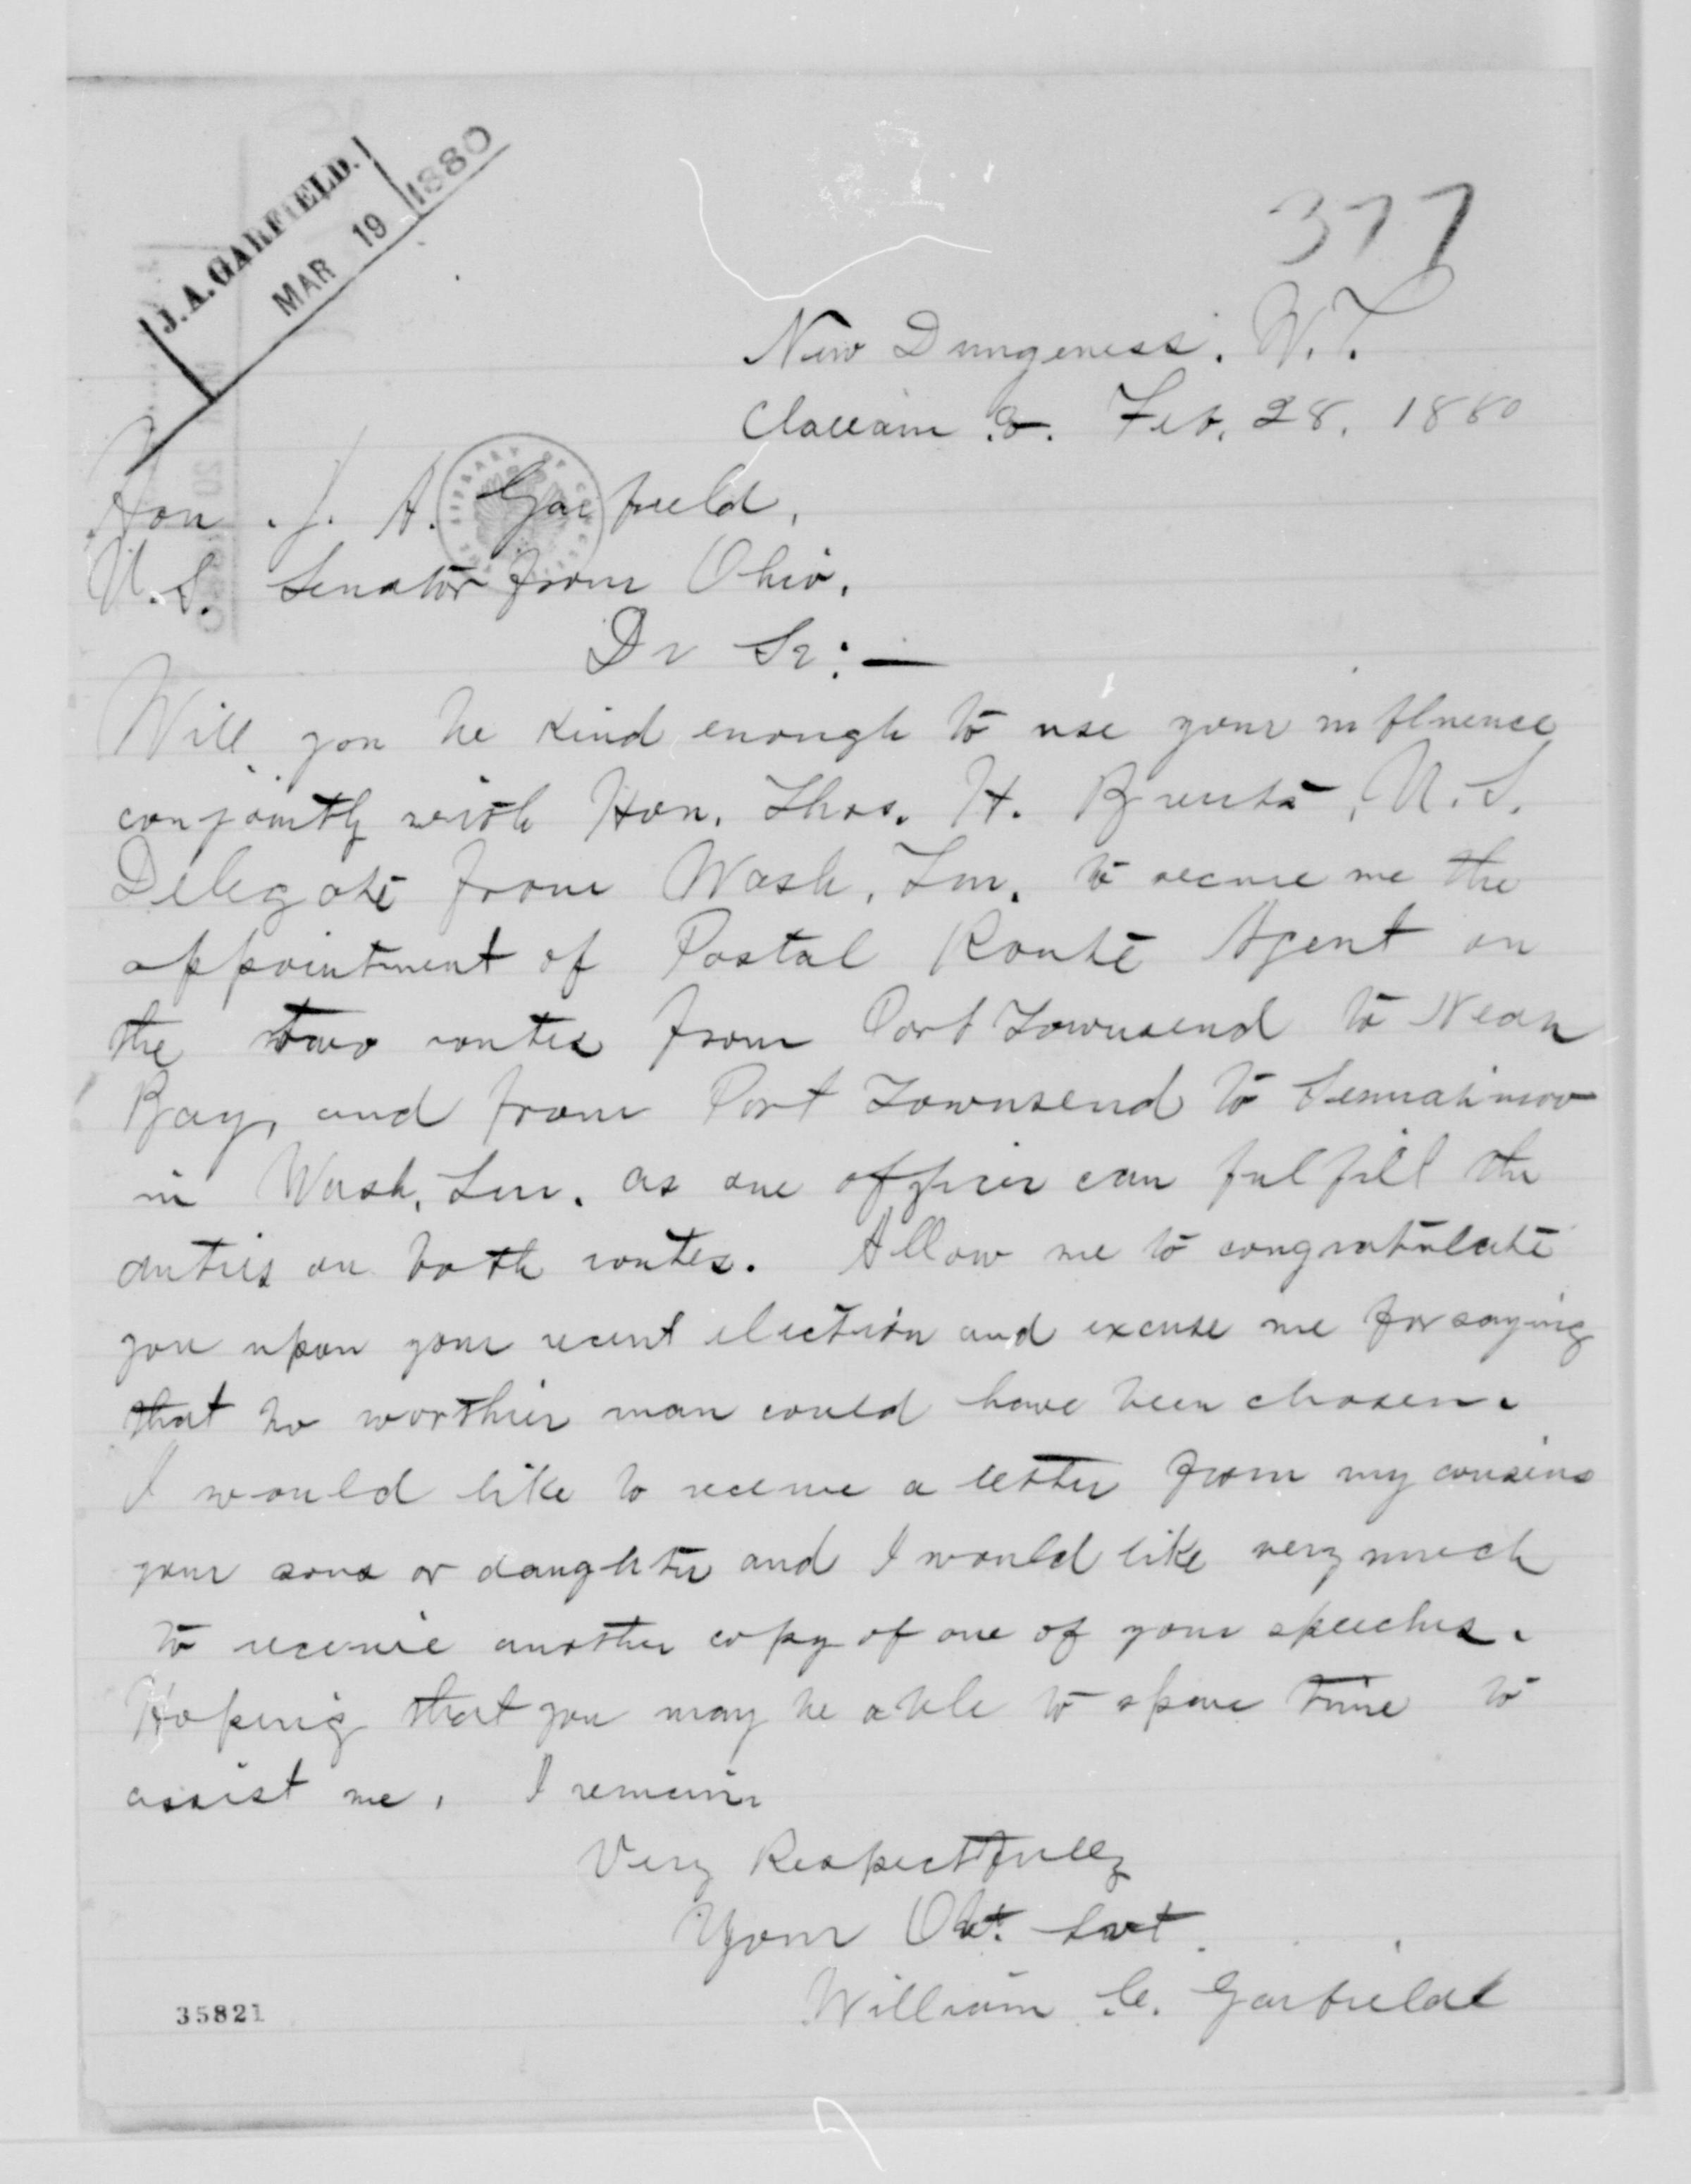 J. A. GARFIELD.
MAR 19 1880
377
New Dungeness. W. T.
Clallam Co. Feb. 28, 1880
Hon. J. A. Garfield,
U. S. Senator from Ohio.
Dr Sr:—
Will you be kind enough to use your influence
conjointly with Hon. Thos. H. Brents, U. S.
Delegate from Wash. Ter. to secure me the
appointment of Postal Route Agent on
the two routes from Port Townsend to Neah
Bay, and from Port Townsend to Semiahmoo
in Wash. Ter. as one officer can fulfill the
duties on both routes. Allow me to congratulate
you upon your recent election and excuse me for saying
that no worthier man could have been chosen.
I would like to receive a letter from my cousins
your sons or daughter and I would like very much
to receive another copy of one of your speeches.
Hoping that you may be able to spare time to
assist me, I remain
Very Respectfully
Your Obt. Svt.
William C. Garfield
35821